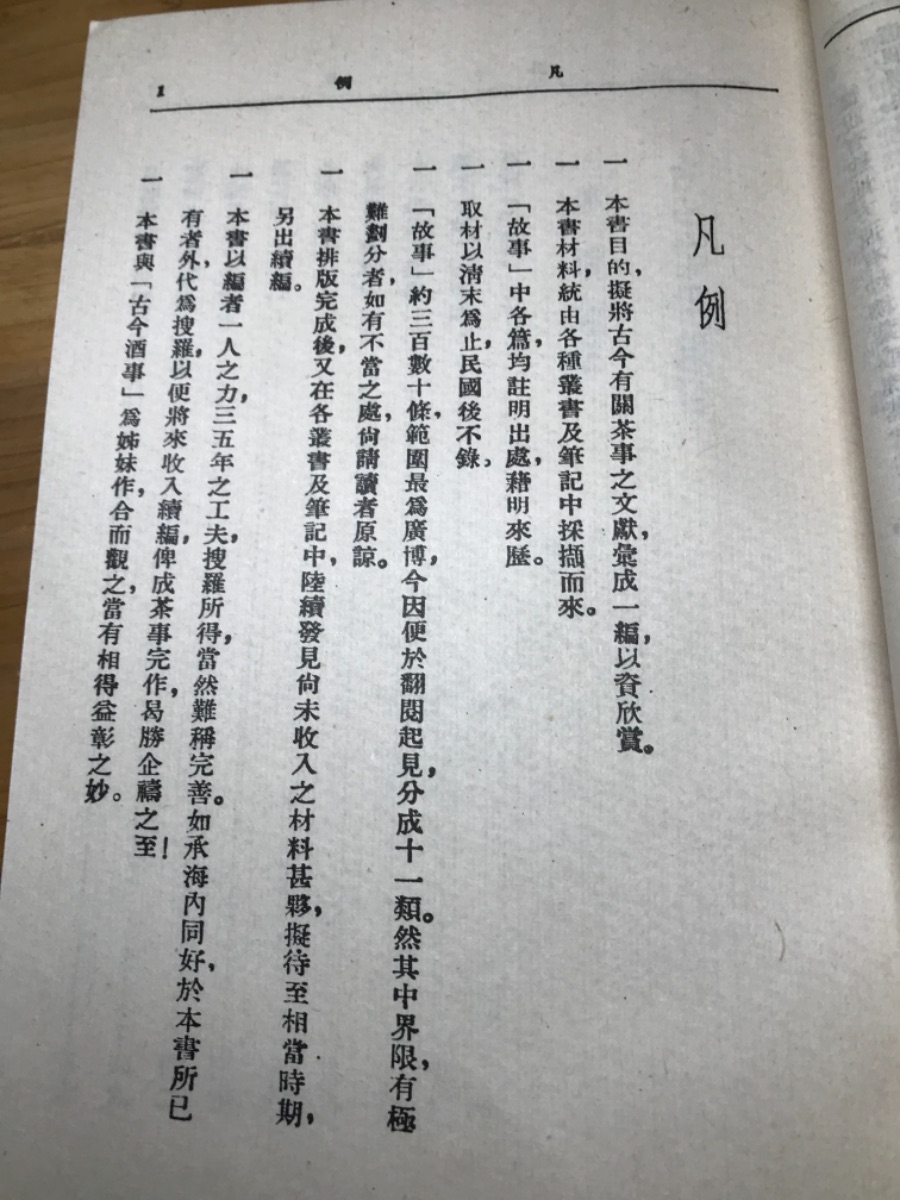 凡例
1
凡例
一　本書目的，擬將古今有關茶事之文獻，彙成一編，以資欣賞。
一　本書材料，統由各種叢書及筆記中採擷而來。
一　「故事」中各篇，均註明出處，藉明來歷。
一　取材以清末爲止，民國後不錄。
一　「故事」約三百數十條，範圍最爲廣博，今因便於翻閱起見，分成十一類。然其中界限，有極
難劃分者，如有不當之處，尙請讀者原諒。
一　本書排版完成後，又在各叢書及筆記中，陸續發見尙未收入之材料甚夥，擬待至相當時期，
另出續編。
一　本書以編者一人之力，三五年之工夫，搜羅所得，當然難稱完善。如承海內同好，於本書所已
有者外，代爲搜羅，以便將來收入續編，俾成茶事完作，曷勝企禱之至！
一　本書與「古今酒事」爲姊妹作，合而觀之，當有相得益彰之妙。